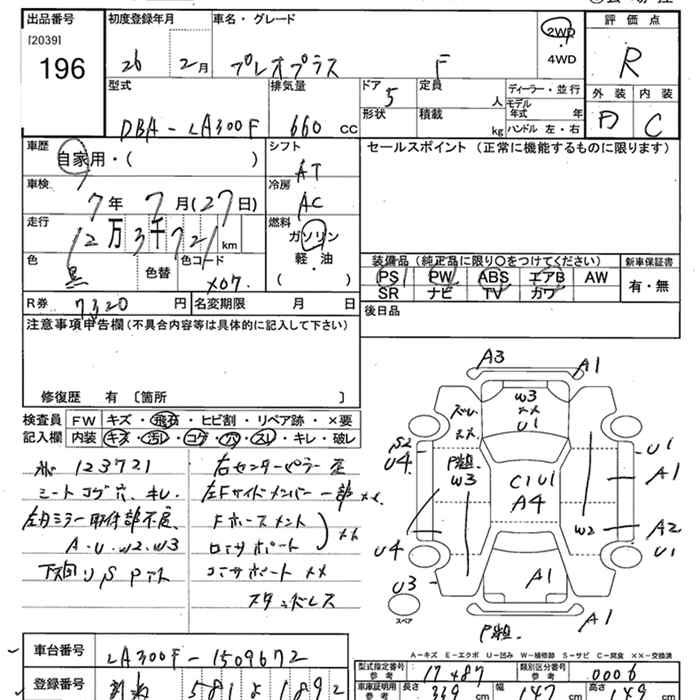 出品番号
[2039]
196
初度登録年月
26 2月
車名・グレード
プレオプラス F
2WD
4WD
評価点
R
外装 内装
D C
型式
DBA-LA300F
排気量
660 CC
ドア 5
形状
定員 人
積載 kg
ディーラー・並行
モデル年式 年
ハンドル 左・右
車歴
自家用・( )
シフト
AT
セールスポイント (正常に機能するものに限ります)
車検
7年 7月(27日)
冷房
AC
走行
12万3千721km
燃料
ガソリン
軽・油
( )
色
黒
色替
色コード
X07.
装備品 (純正品に限り○をつけてください)
新車保証書
PS PW ABS エアB AW
有・無
SR ナビ TV カワ
R券 7320円
名変期限 月 日
後日品
注意事項申告欄(不具合内容等は具体的に記入して下さい)
修復歴 有 〔箇所 〕
検査員
記入欄
FW キズ・飛石・ヒビ割・リペア跡・×要
内装 キズ・汚レ・コゲ・穴・スレ・キレ・破レ
123721
シートコゲ穴、キレ.
左右ミラー取付部不良
A.U.W2.W3
下回りS
右センターピラー
左Fサイドメンバー 一部 ××
Fホースメント
ロアサポート ××
コアサポート ××
スタンドレス
A3
A1
W3
××
U1
ズレ
××
S2
U4
P粗.
W3
C1U1
A4
U1
A1
W2
A2
U1
U4
U3
A1
A1
P粗.
スペア
A-キズ E-エクボ U-凹み W-補修跡 S-サビ C-腐食 ××-交換済
車台番号
LA300F-1509672
登録番号
581 よ 1892
型式指定番号
参考
17487
類別区分番号
参考
0006
車庫証明用
参考
長さ 339 cm
幅 147 cm
高さ 149 cm